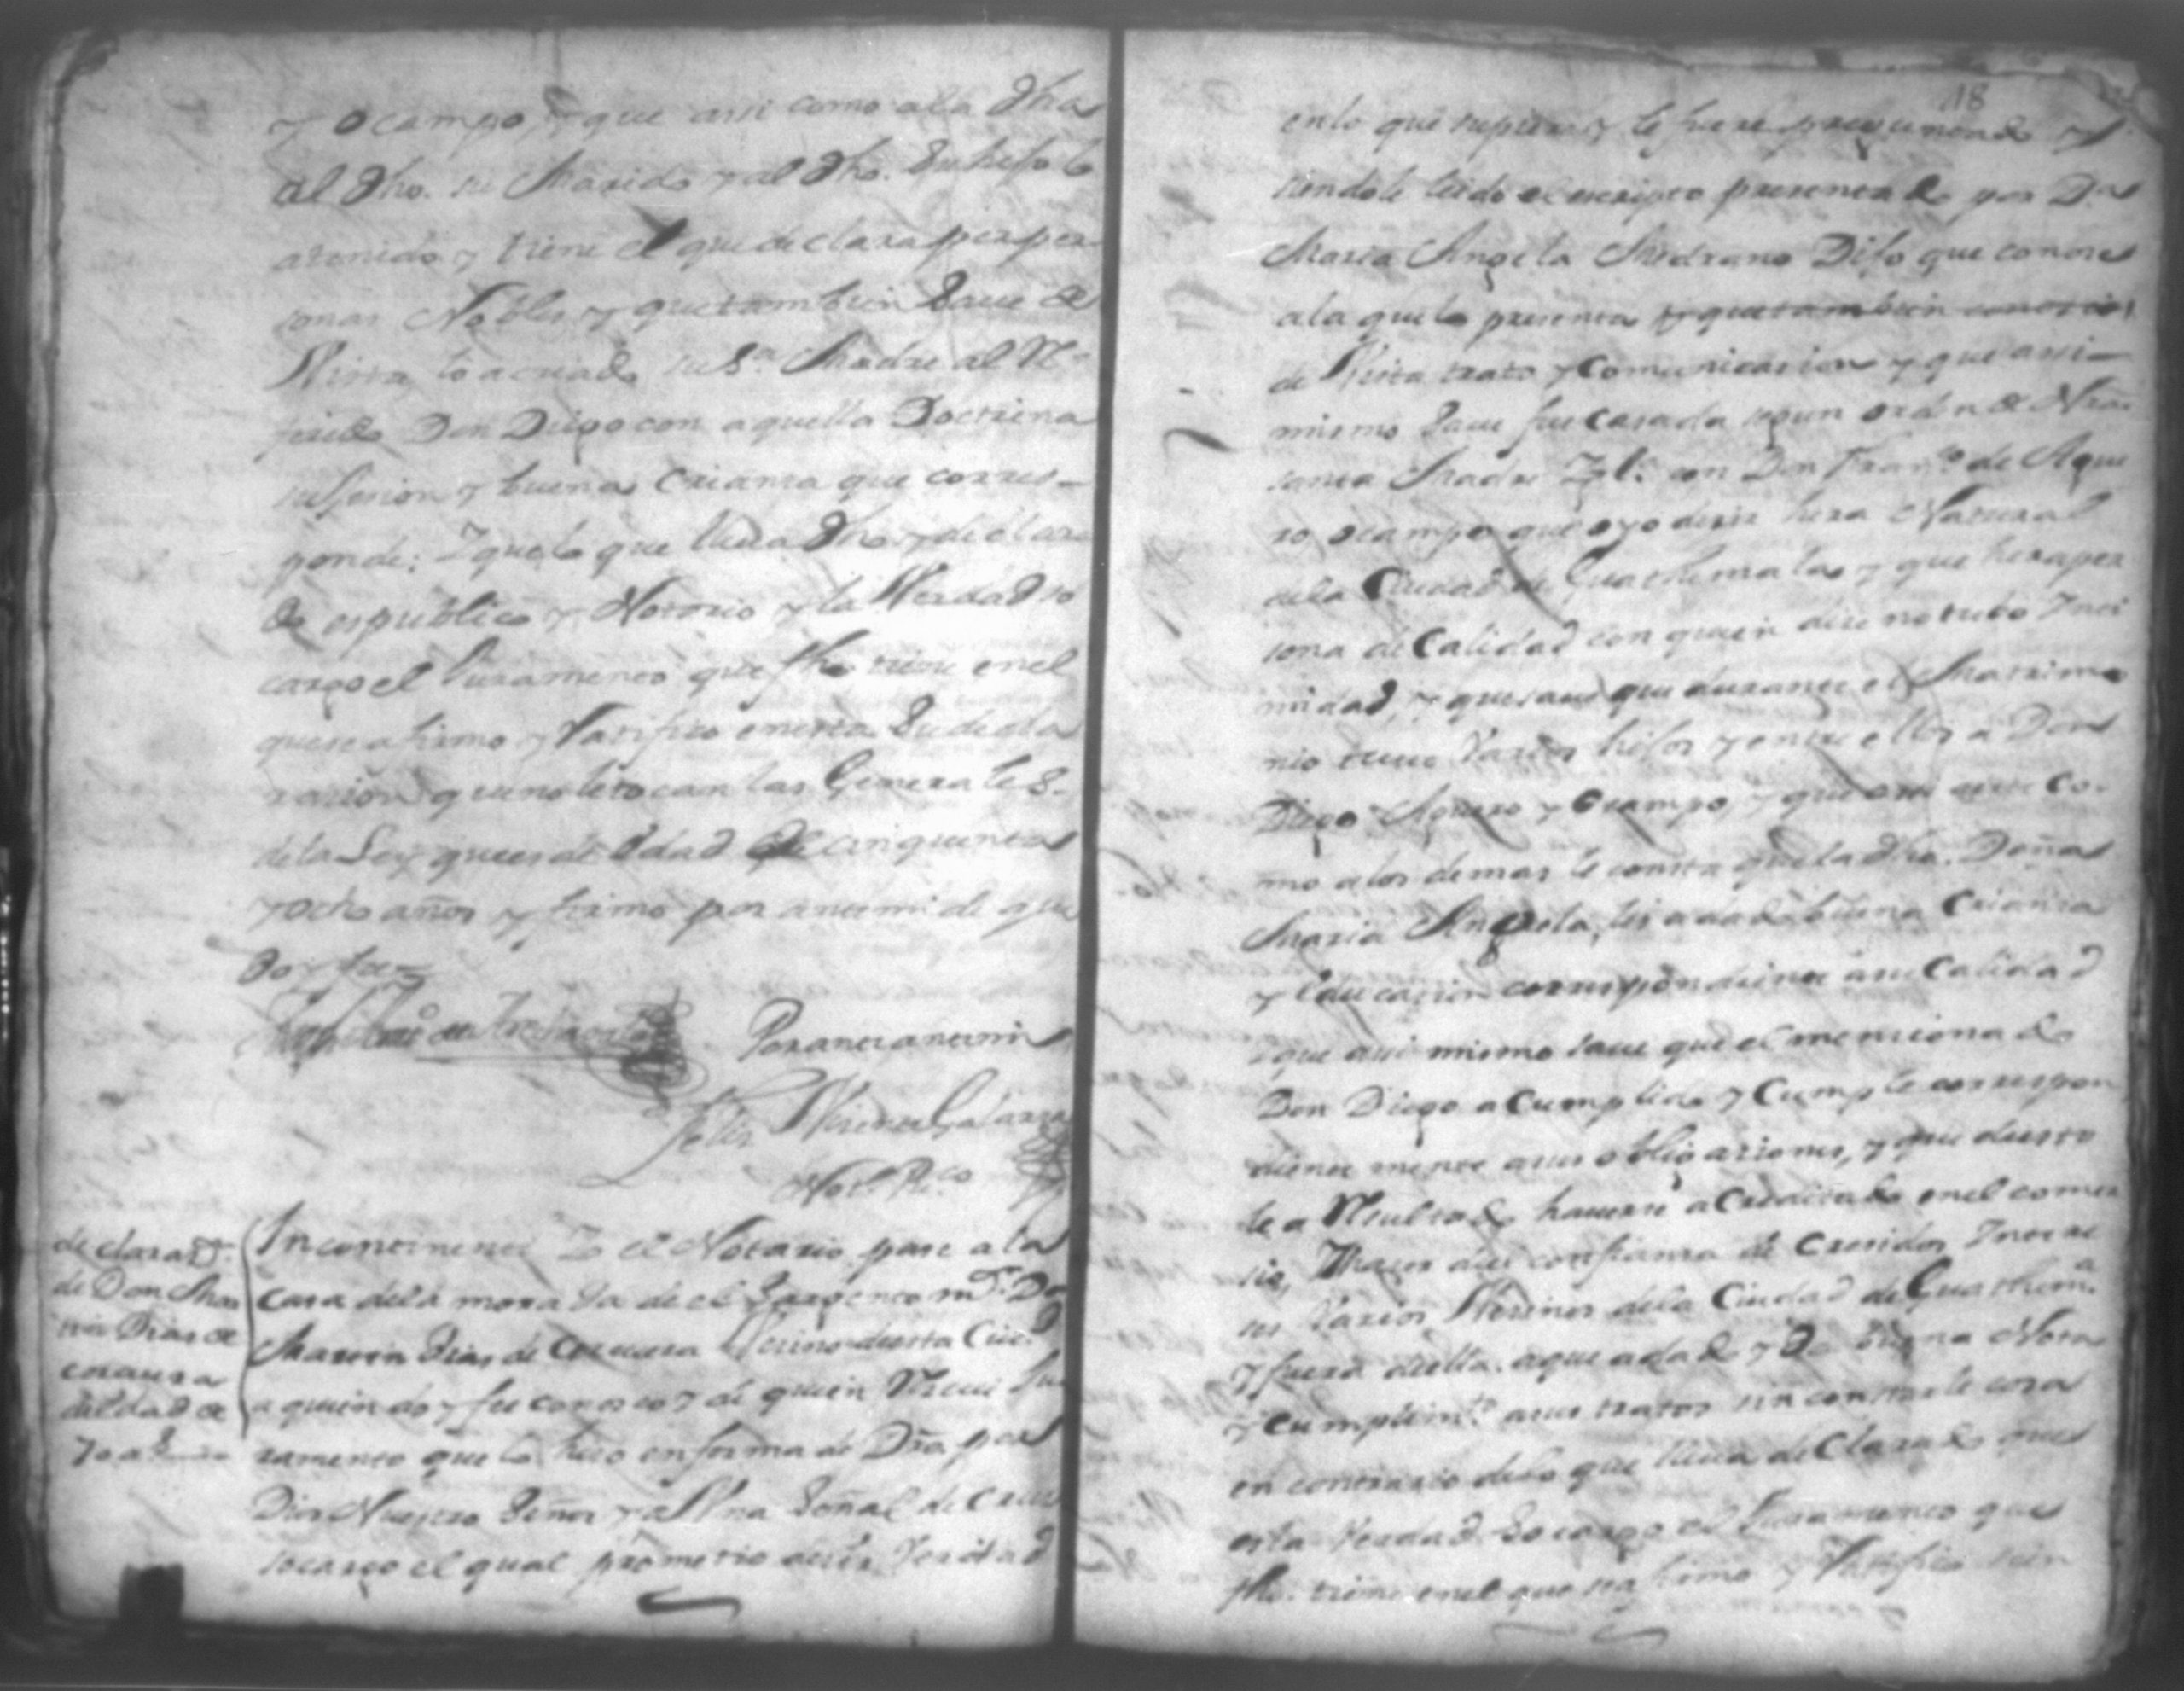 y Ocampo, y que assi como ala dha
al dho. su Marido y al dho. Su hijo lo
atenido y tiene el que declara por per
sonas Nobles y que tambien Save de
Vista lo acriado su Sa. Madre al Re
ferido Don Diego con aquella Doctrina
sujesion y buena Crianza que corres-
ponde: Y que lo que lleva dho y declara
do es publico y Notorio y la Verdad so
cargo el Juramento que fho tiene en el
que se afirmo y Ratifico en esta Su decla
racion que no le tocan las Generales
de la Ley que es de Edad de cinquenta
y ocho años y firmo por ante mi de que
Doy fee
Por ante mi
Felix
Nott. Pco.
declaraon.
de Don Mar
tin Dias de
corcuera
de Edad de
70 as
Incontinenti Yo el Notario pase a la
Casa de la morada de el Sargento mor. Dn
Martin Dias de Corcuera Vecino de esta Ciud.
a quien doy fee conosco y de quien Recivi Ju
ramento que lo hizo en forma de Dro. por
Dios Nuestro Señor y a Una Señal de Cruz
so cargo el qual prometio decir Verdad
18
en lo que supiere y le fuere preguntado y
siendole leido el escripto presentado por Da
Maria Angela Medrano Dijo que conose
ala que lo presenta y que tambien conosio
de Vista trato y Comunicacion y que assi-
mismo Save fue Casada segun orden de Nra.
santa Madre Ygla. con Don Franco. de Ague
ro Ocampo que oyo decir hera Natural
de la Ciudad de Guathemala y que hera per
sona de Calidad con quien dise no tubo Inti
midad, y que save que durante el Matrimo
nio tuvo Varios hijos y entre ellos a Don
Diego Aguero y Ocampo, y que a este co-
mo a los demas le consta que la dha. Doña
Maria Angela, les a dado buena Crianza
y Educacion correspondiente a su Calidad
que assi mismo save que el menciona do
Don Diego a Cumplido y Cumple correspon
diente mente a sus obligaciones, y que de esto
le a Resultado haverse a Creditado en el comer
cio, Y hacer de su confianza de Cresidos Intere
ses Varios Vecinos de la Ciudad de Guathema.
y fuera de ella. a que a dado y Da buena Nota
y Cumplimto. a sus tratos sin constarle cosa
en contrario de lo que lleva de Clarado que
es la Verdad So cargo el Juramento que
fho. tiene en el que se afirmo y Ratifico